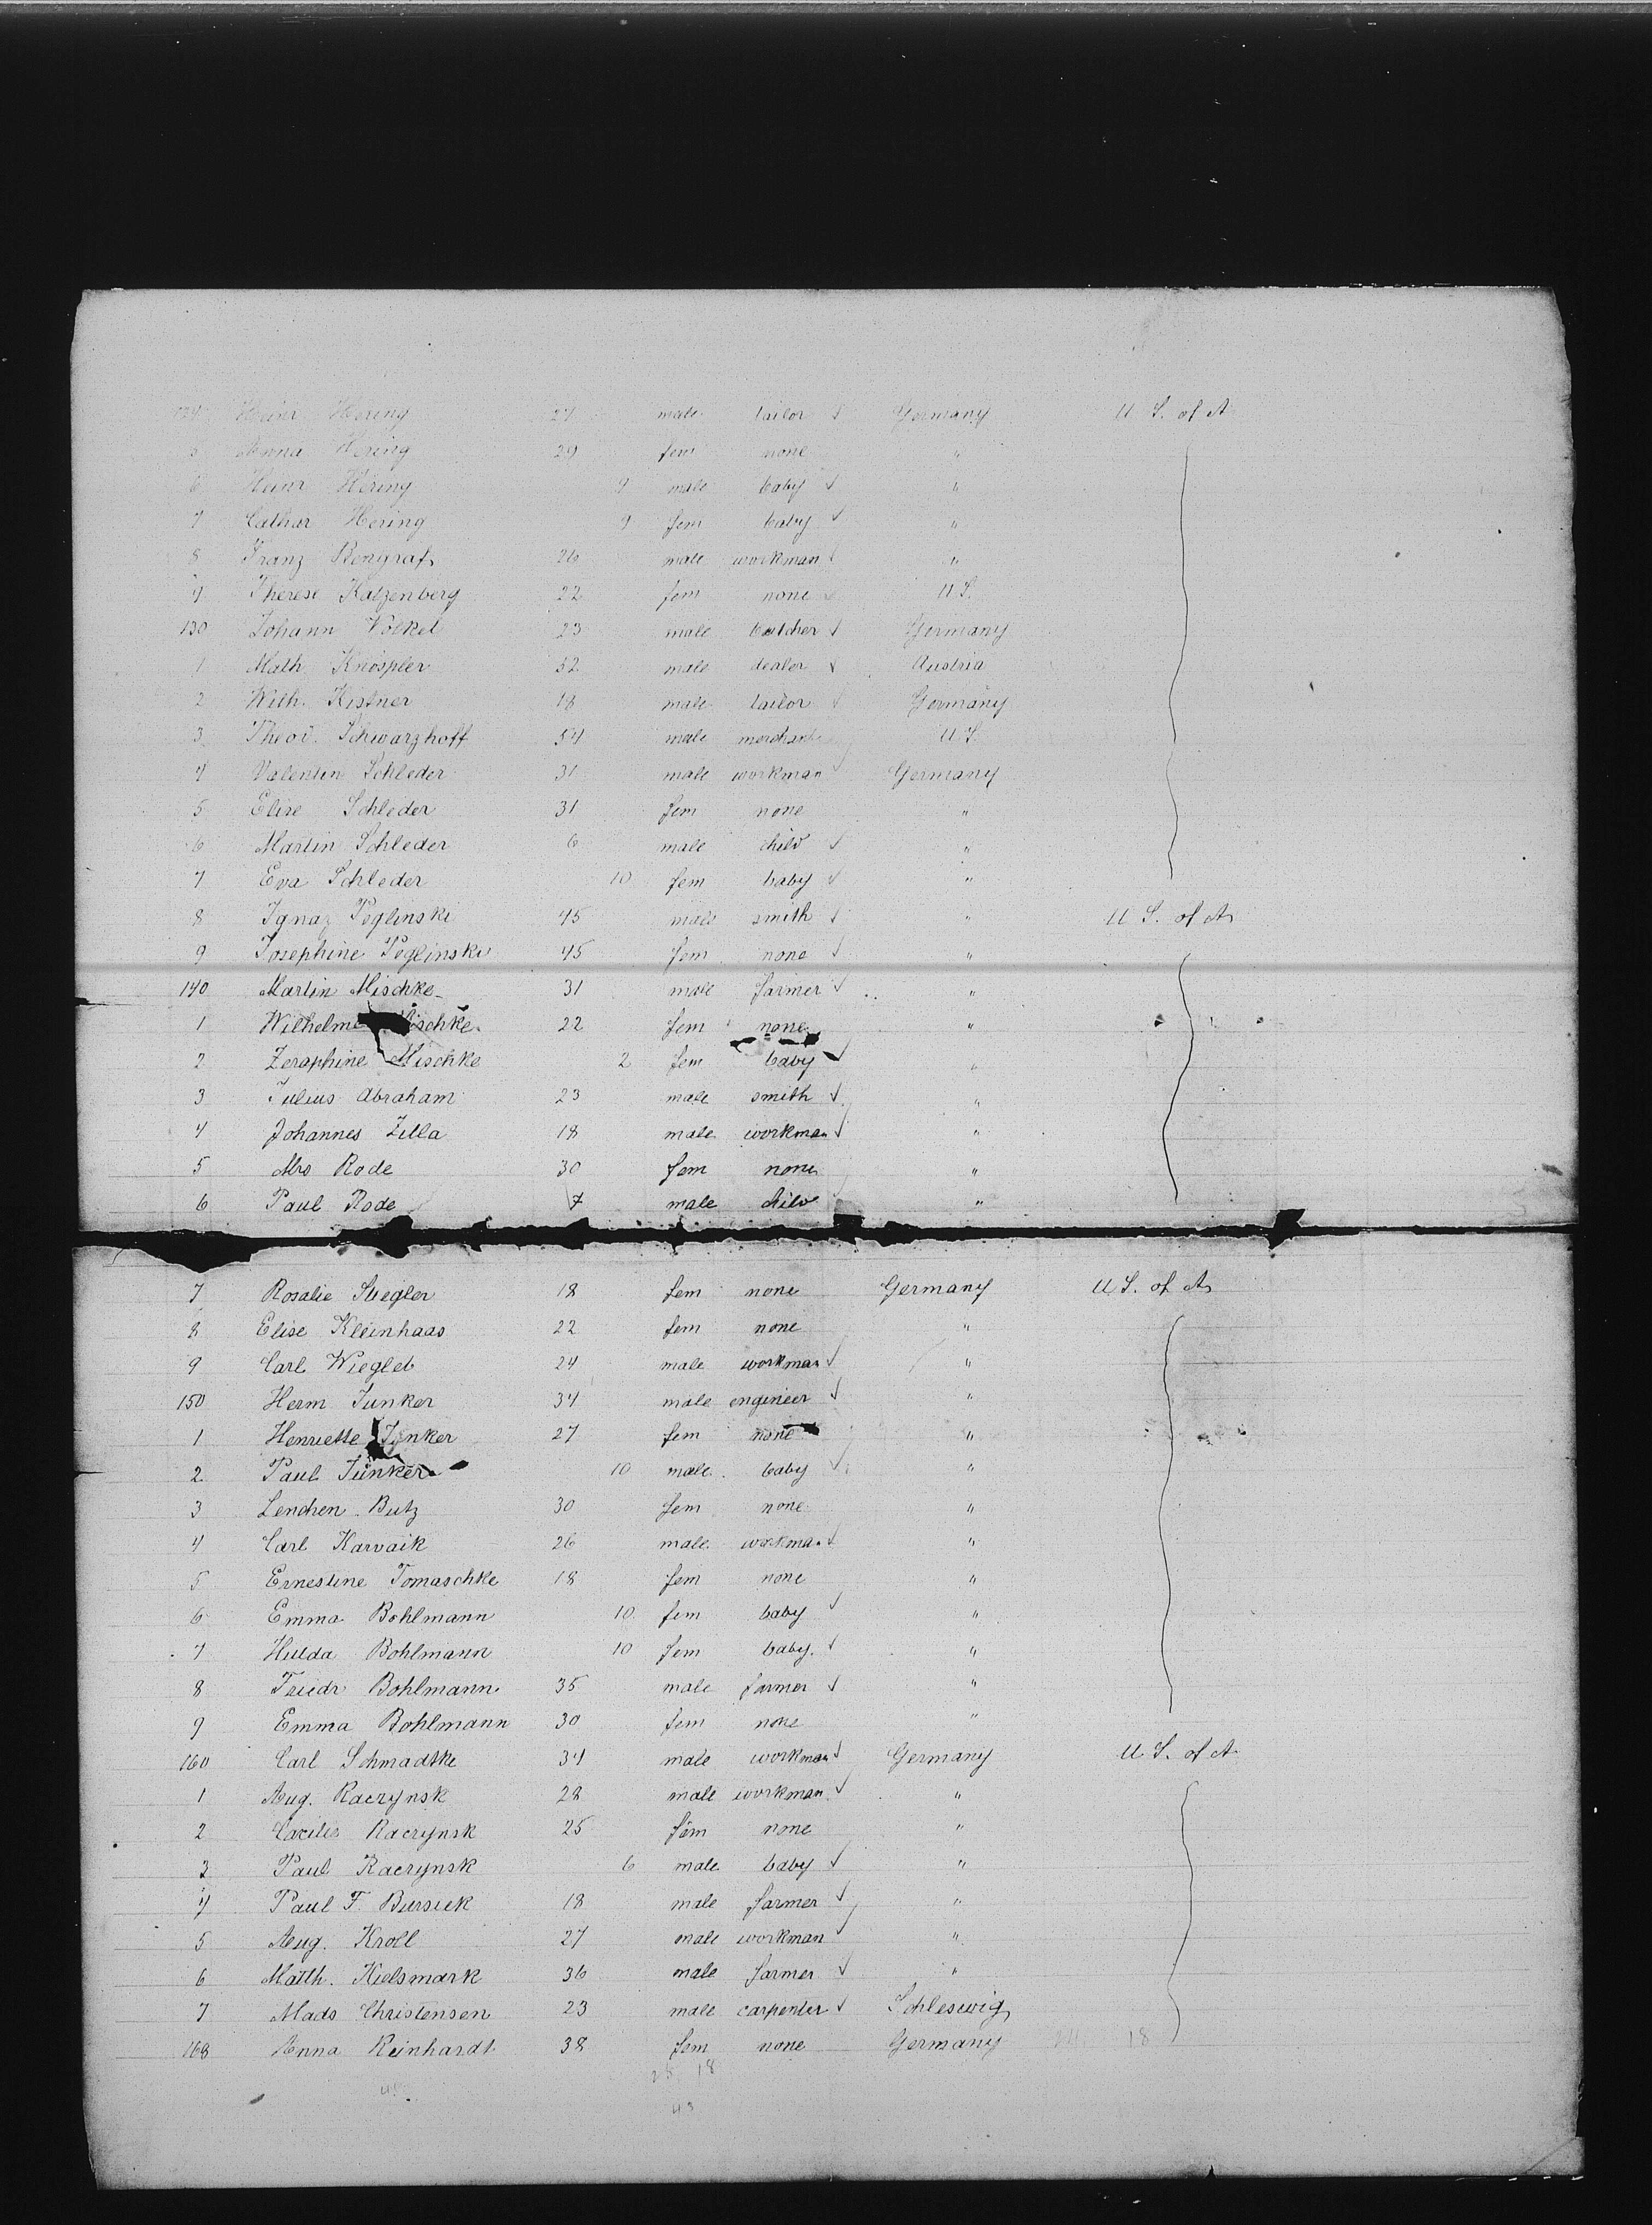 124 Heinr Hering 27 male tailor √ Germany U S. of A
5 Anna Hering 29 fem none "
6 Heinr Hering 9 male baby √ "
7 Cathar Hering 9 fem baby √ "
8 Franz Bengraf 26 male workman √ "
9 Therese Katzenberg 22 fem none U S.
130 Johann Volkel 23 male butcher √ Germany
1 Math Knöspler 52 male dealer √ Austria
2 Wilh. Kistner 18 male tailor √ Germany
3 Theod. Schwarzhoff 54 male merchant U.S.
4 Valentin Schleder 31 male workman √ Germany
5 Elise Schleder 31 fem none "
6 Martin Schleder 6 male child √ "
7 Eva Schleder 10 fem baby √ "
8 Ignaz Peglinski 45 male smith √ " U S. of A
9 Josephine Peglinski 45 fem none √ "
140 Martin Mischke 31 male farmer √ "
1 Wilhelme Mischke 22 fem none "
2 Zeraphine Mischke 2 fem baby √ "
3 Julius Abraham 23 male smith √ "
4 Johannes Zilla 18 male workman √ "
5 Mrs Rode 30 fem none "
6 Paul Rode 7 male child "
7 Rosalie Stiegler 18 fem none Germany U S. of A
8 Elise Kleinhaas 22 fem none "
9 Carl Wiegleb 24 male workman √ "
150 Herm Junker 34 male engineer √ "
1 Henriette Junker 27 fem none "
2 Paul Junker 10 male baby √ "
3 Lenchen Butz 30 fem none "
4 Carl Karvaik 26 male workman √ "
5 Ernestine Tomaschke 18 fem none "
6 Emma Bohlmann 10 fem baby √ "
7 Hulda Bohlmann 10 fem baby. √ "
8 Friedr Bohlmann 35 male farmer √ "
9 Emma Bohlmann 30 fem none "
160 Carl Schmadtke 34 male workman √ Germany U S. of A
1 Aug. Raczynsk 28 male workman √ "
2 Cacilie Raczynsk 25 fem none "
3 Paul Raczynsk 6 male baby √ "
4 Paul F. Bursiek 18 male farmer √ "
5 Aug. Kroll 27 male workman √ "
6 Matth. Kielsmark 36 male farmer √ "
7 Mads Christensen 23 male carpenter √ Schleswig
168 Anna Reinhardt 38 fem none Germany 18
25 18
43